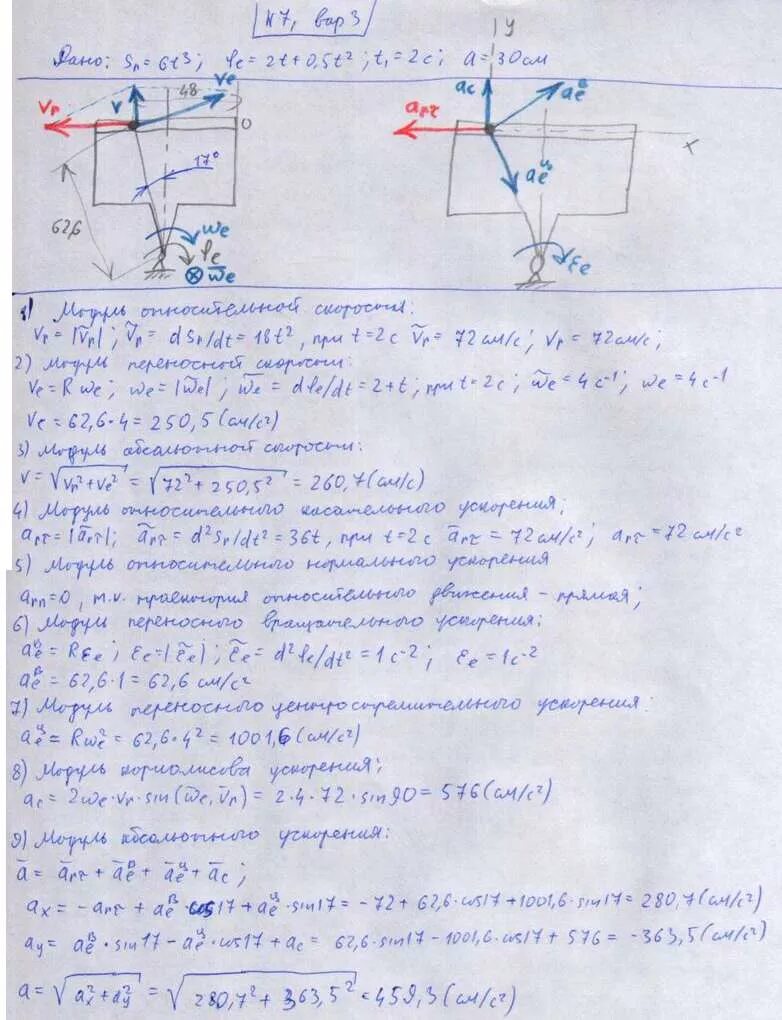 N7, вар 3
Дано: Sr = 6t³; φe = 2t+0,5t²; t₁ = 2c; a = 30 см
y
Vr
V
Ve
48
O
17°
62,6
ωe
φe
ω̄e
ac
aeᴮ
arτ
aeᶸ
x
εe
1) Модуль относительной скорости:
Vr = |Ṽr|; Ṽr = dSr/dt = 18t², при t=2c Ṽr = 72 см/c; Vr = 72 см/c;
2) Модуль переносной скорости:
Ve = Rωe; ωe = |ω̃e|; ω̃e = dφe/dt = 2+t; при t=2c; ω̃e = 4 c⁻¹; ωe = 4 c⁻¹
Ve = 62,6·4 = 250,5 (см/c²)
3) Модуль абсолютной скорости:
V = √(Vr²+Ve²) = √(72²+250,5²) = 260,7 (см/c)
4) Модуль относительного касательного ускорения;
arτ = |ãrτ|; ãrτ = d²Sr/dt² = 36t, при t=2c ãrτ = 72 см/c²; arτ = 72 см/c²
5) Модуль относительного нормального ускорения
arn = 0, т.к. траектория относительного движения - прямая;
6) Модуль переносного вращательного ускорения:
aeᴮ = Rεe; εe = |ε̃e|; ε̃e = d²φe/dt² = 1 c⁻²; εe = 1 c⁻²
aeᴮ = 62,6·1 = 62,6 см/c²
7) Модуль переносного центростремительного ускорения:
aeᶸ = Rωe² = 62,6·4² = 1001,6 (см/c²)
8) Модуль кориолисова ускорения;
ac = 2ωe·Vr·sin(ω̄e, V̄r) = 2·4·72·sin90 = 576 (см/c²)
9) Модуль абсолютного ускорения:
ā = ārτ + āeᴮ + āeᶸ + āc;
ax = -arτ + aeᴮ·cos17 + aeᶸ·sin17 = -72 + 62,6·cos17 + 1001,6·sin17 = 280,7 (см/c²)
ay = aeᴮ·sin17 - aeᶸ·cos17 + ac = 62,6·sin17 - 1001,6·cos17 + 576 = -363,5 (см/c²)
a = √(ax²+ay²) = √(280,7²+363,5²) = 459,3 (см/c²)